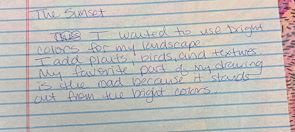 The Sunset
I wanted to use bright
colors for my landscape.
I add plants, birds, and textures.
My favorite part of my drawing
is the road because it stands
out from the bright colors.